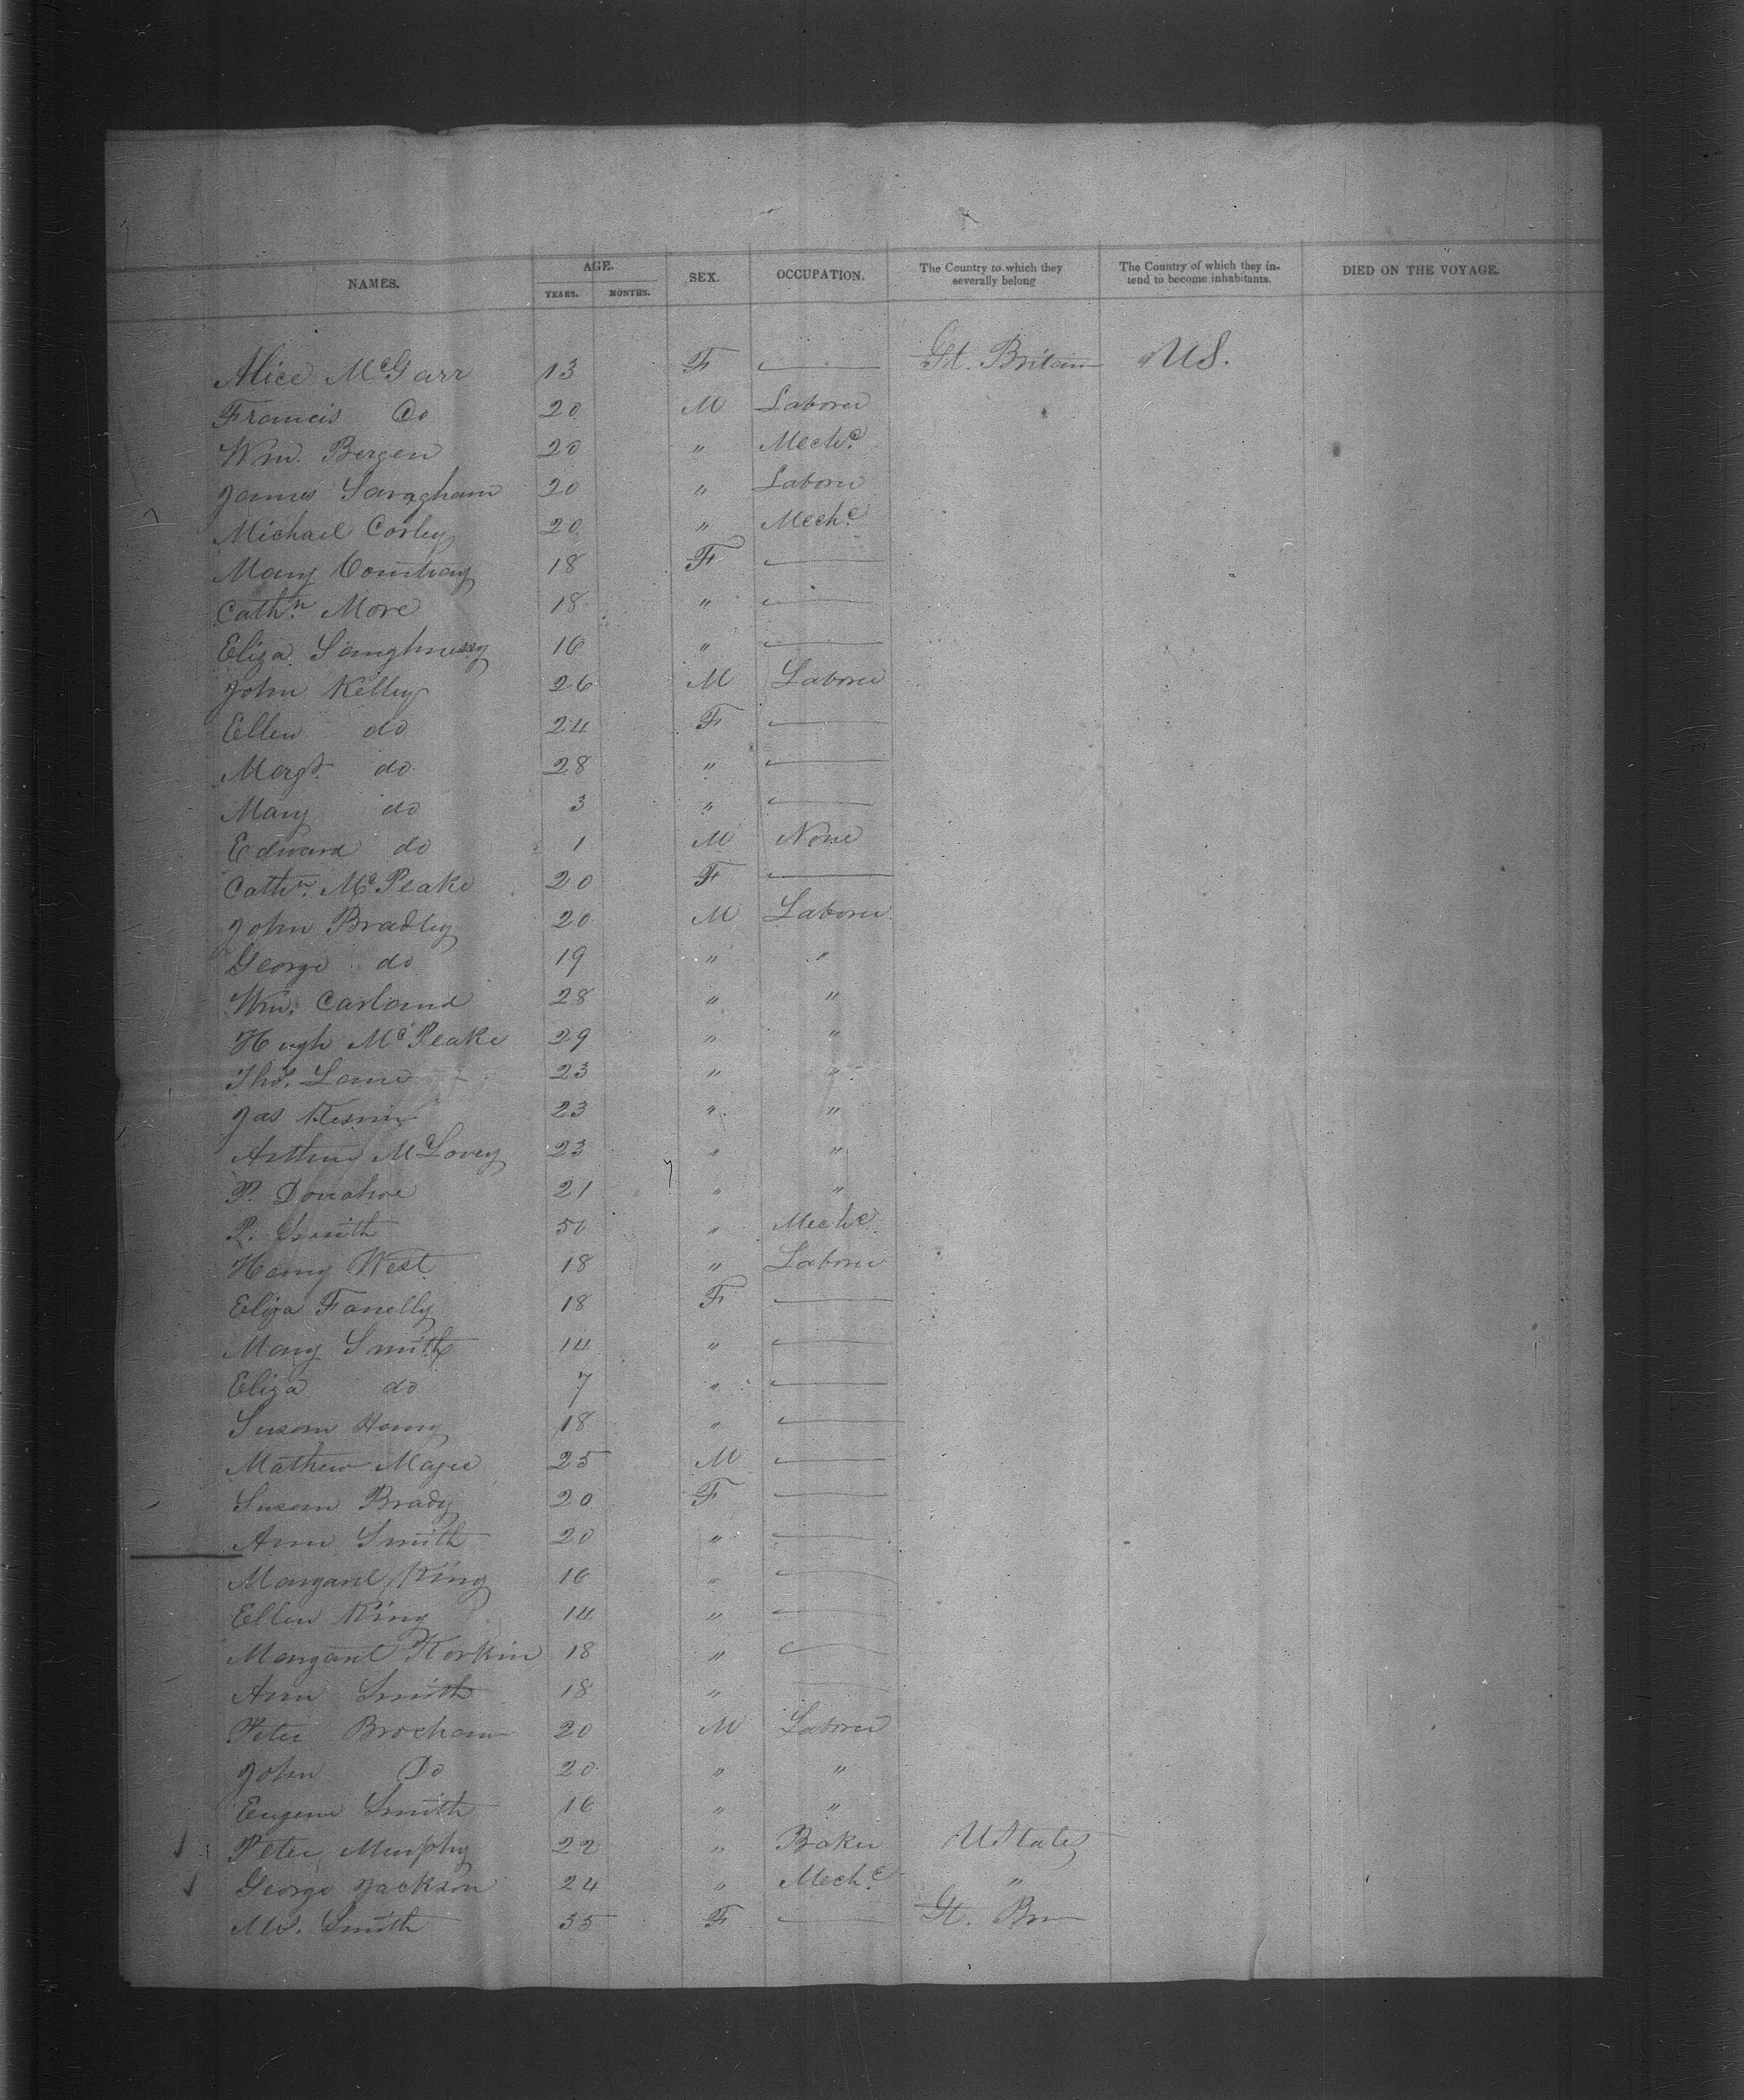 NAMES. AGE. YEARS. MONTHS. SEX. OCCUPATION. The Country to which they severally belong The Country of which they intend to become inhabitants. DIED ON THE VOYAGE.
Alice McGarr 13 F — Gt. Britain US.
Francis Do 20 M Laborer
Wm. Bergen 20 " Mechc.
James 20 " Laborer
Michael Corley 20 " Mechc.
Mary 18 F —
Cathn. More 18 " —
Eliza 16 " —
John Kelley 26 M Laborer
Ellen do 24 F —
Margt. do 28 " —
Mary do 3 " —
Edward do 1 M None
Cathn. McPeake 20 F —
John Bradley 20 M Laborer
George do 19 " "
Wm. Carland 28 " "
Hugh McPeake 29 " "
Thos. Lane 23 " "
Jas 23 " "
Arthur 23 " "
P. Donahoe 21 " "
P. Smith 50 " Mechc.
Henry West 18 " Laborer
Eliza Fanelly 18 F —
Mary Smith 14 " —
Eliza do 7 " —
Susan Henry 18 " —
Mathew Magee 25 M —
Susan Brady 20 F —
Ann Smith 20 " —
Margaret King 16 " —
Ellen King 14 " —
Margaret 18 " —
Ann Smith 18 " —
Peter Brocham 20 M Laborer
John Do 20 " "
Eugene Smith 16 " "
Peter Murphy 22 " Baker UStates
George Jackson 24 " Mechc. "
Mrs. Smith 35 F — Gt. Brn